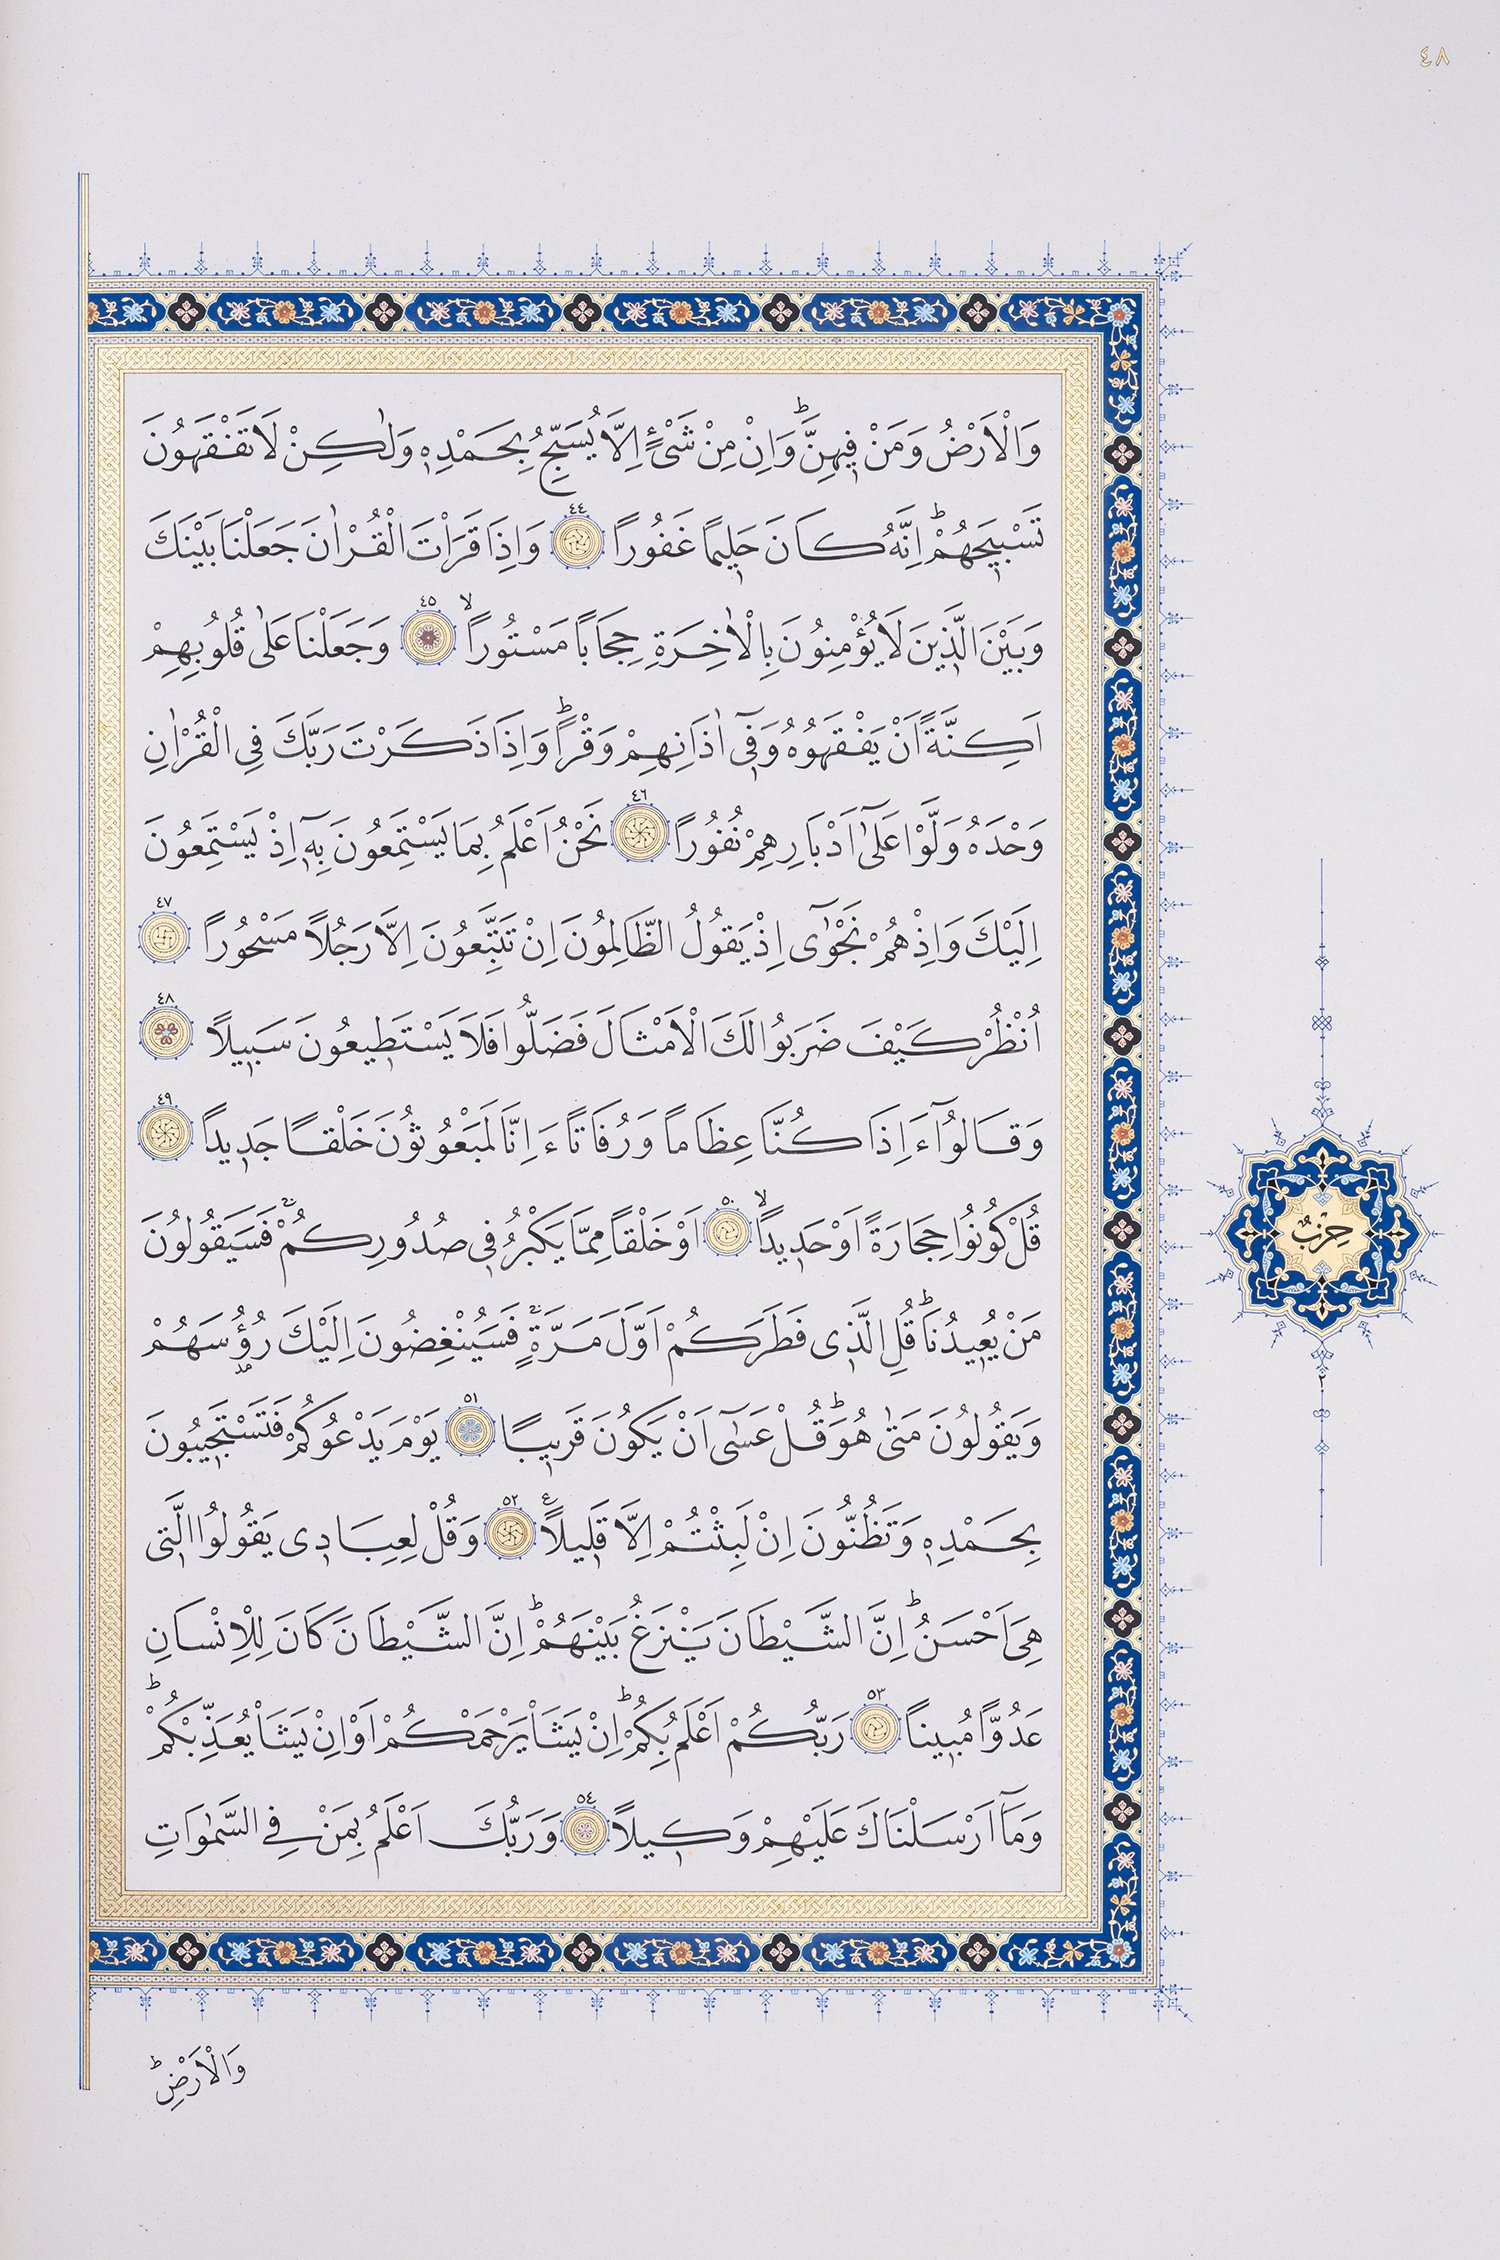 ٤٨
وَالْاَرْضُ وَمَنْ ف۪يهِنَّۜ وَاِنْ مِنْ شَيْءٍ اِلَّا يُسَبِّحُ بِحَمْدِه۪ وَلٰكِنْ لَا تَفْقَهُونَ
تَسْب۪يحَهُمْۜ اِنَّهُ كَانَ حَل۪يمًا غَفُورًا ٤٤ وَاِذَا قَرَاْتَ الْقُرْاٰنَ جَعَلْنَا بَيْنَكَ
وَبَيْنَ الَّذ۪ينَ لَا يُؤْمِنُونَ بِالْاٰخِرَةِ حِجَابًا مَسْتُورًاۙ ٤٥ وَجَعَلْنَا عَلٰى قُلُوبِهِمْ
اَكِنَّةً اَنْ يَفْقَهُوهُ وَف۪ٓي اٰذَانِهِمْ وَقْرًاۜ وَاِذَا ذَكَرْتَ رَبَّكَ فِي الْقُرْاٰنِ
وَحْدَهُ وَلَّوْا عَلٰٓى اَدْبَارِهِمْ نُفُورًا ٤٦ نَحْنُ اَعْلَمُ بِمَا يَسْتَمِعُونَ بِه۪ٓ اِذْ يَسْتَمِعُونَ
اِلَيْكَ وَاِذْ هُمْ نَجْوٰٓى اِذْ يَقُولُ الظَّالِمُونَ اِنْ تَتَّبِعُونَ اِلَّا رَجُلًا مَسْحُورًا ٤٧
اُنْظُرْ كَيْفَ ضَرَبُوا لَكَ الْاَمْثَالَ فَضَلُّوا فَلَا يَسْتَط۪يعُونَ سَب۪يلًا ٤٨
وَقَالُٓوا ءَاِذَا كُنَّا عِظَامًا وَرُفَاتًا ءَاِنَّا لَمَبْعُوثُونَ خَلْقًا جَد۪يدًا ٤٩
قُلْ كُونُوا حِجَارَةً اَوْ حَد۪يدًاۙ ٥٠ اَوْ خَلْقًا مِمَّا يَكْبُرُ ف۪ي صُدُورِكُمْۚ فَسَيَقُولُونَ
مَنْ يُع۪يدُنَاۜ قُلِ الَّذ۪ي فَطَرَكُمْ اَوَّلَ مَرَّةٍۚ فَسَيُنْغِضُونَ اِلَيْكَ رُؤُ۫سَهُمْ
وَيَقُولُونَ مَتٰى هُوَۜ قُلْ عَسٰٓى اَنْ يَكُونَ قَر۪يبًا ٥١ يَوْمَ يَدْعُوكُمْ فَتَسْتَج۪يبُونَ
بِحَمْدِه۪ وَتَظُنُّونَ اِنْ لَبِثْتُمْ اِلَّا قَل۪يلًا۟ ٥٢ وَقُلْ لِعِبَاد۪ي يَقُولُوا الَّت۪ي
هِيَ اَحْسَنُۜ اِنَّ الشَّيْطَانَ يَنْزَغُ بَيْنَهُمْۜ اِنَّ الشَّيْطَانَ كَانَ لِلْاِنْسَانِ
عَدُوًّا مُب۪ينًا ٥٣ رَبُّكُمْ اَعْلَمُ بِكُمْۜ اِنْ يَشَاْ يَرْحَمْكُمْ اَوْ اِنْ يَشَاْ يُعَذِّبْكُمْۜ
وَمَٓا اَرْسَلْنَاكَ عَلَيْهِمْ وَك۪يلًا ٥٤ وَرَبُّكَ اَعْلَمُ بِمَنْ فِي السَّمٰوَاتِ
وَالْاَرْضِۜ
حِزْبٌ
٢